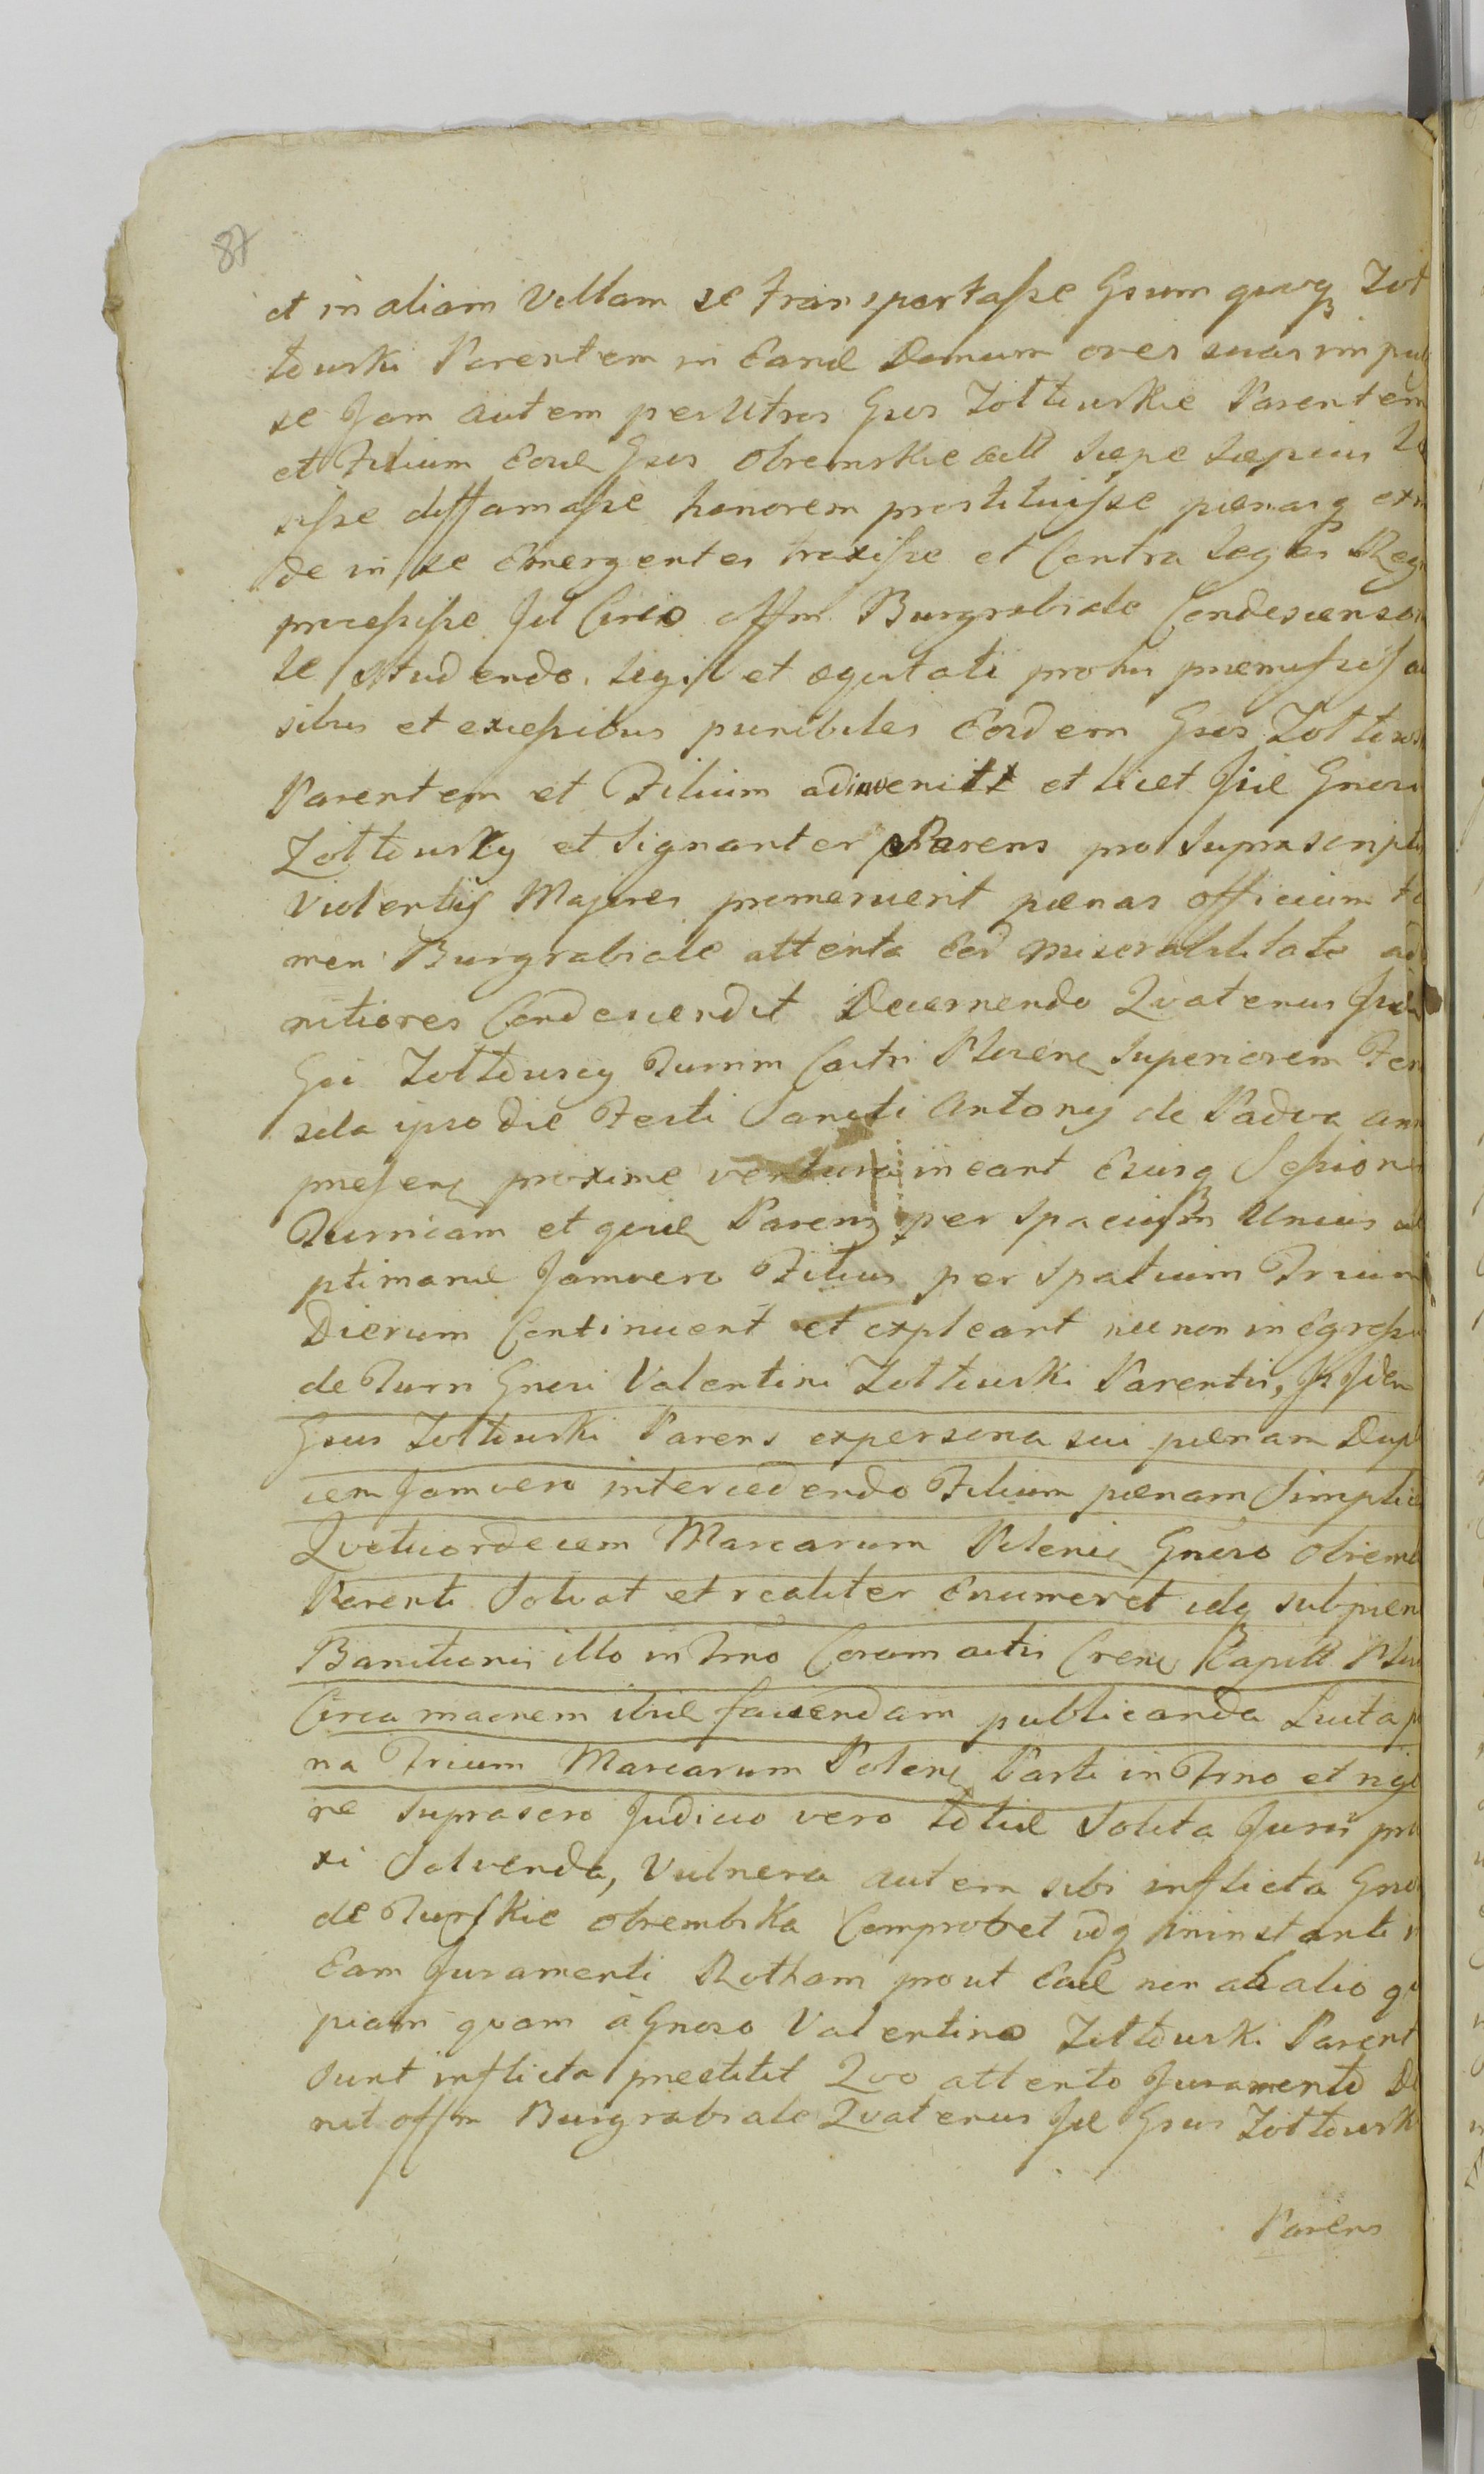 87
et in aliam Villam se transportasse Gsum quoq Zot
towski Parentem in Eand Domum oves suas impul
se Jam autem per Utros Gsos Zottowskie Parentem
et Filium Eosd Gsos Obremskie sæpe sæpius
sisse diffamasse honorem prostituisse pænasq ex
de in se Emergentes traxisse et Contra Leges Reg
processisse Offm Burgrabiale Condescenso
se studendo Legi et æquitati pro his præmissis
sibus et excessibus punibiles Eosdem Gsos Zottows
Parentem et Filium adinvenit et licet Gnosi
Zottowscy et signanter Parens pro suprascriptis
Violentijs Majores promeruerit pænas officium ta
men Burgrabiale attenta Eor miserabilitate ad
mitiores Condescendit Decernendo Qvatenus
Gsi Zottowscy Turrim Castri Plocen Superiorem Fer
sela ipso die Festi Sancti Antonij de Padva an
præsen proxime ventura ineant Eamq Sessione
Turricam et quid Parens per spacium Unius
ptimanæ Jamvero Filius per spatium Trium
Dierum Continuent et expleant nec non in Egressu
de Turri Gnosi Valentini Zottowski Parentis, Idem
Gsus Zottowski Parens ex persona sui pænam Dupl
cem Jamvero intercedendo Filium pænam Simplic
Qvatuordecem Marcarum Polonic Gnoso Obrems
Parenti Solvat et realiter Enumeret idq sub pæn
Banitionis illo in Trno Coram actis Crens Capitt
Circa macnem ibid faciendam publicanda Luita pæ
na Trium Marcarum Polon Parti in Trno et rigo
re suprascro Judicio vero totid Solita Juris pro
xi Solvenda, Vulnera autem sibi inflicta Gnosa
de Turskie Obrembska Comprobet idq in instanti
Eam Juramenti Rotham prout Ead non ab alio q
piam quam à Gnoso Valentino Zottowski Parent
sunt inflicta præstitit Qvo attento Juramento De
nit offm Burgrabiale Qvatenus Gsus Zottowsk
Parens